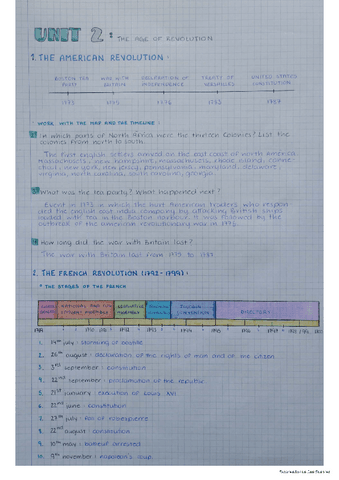 UNIT 2: THE AGE OF REVOLUTION
1. THE AMERICAN REVOLUTION:
BOSTON TEA PARTY WAR WITH BRITAIN DECLARATION OF INDEPENDENCE TREATY OF VERSAILLES UNITED STATES CONSTITUTION
1773 1775 1776 1783 1787
WORK WITH THE MAP AND THE TIMELINE:
In which parts of North America were the thirteen colonies? List the
colonies from north to south.
The first english settlers arrived on the east coast of north america.
Massachusetts, new hampshire, massachusetts, rhode island, connec-
ticut, new york, new jersey, pennsylvania, maryland, delaware,
virginia, north carolina, south carolina, georgia.
What was the tea party? What happened next?
Event in 1773 in which the
and the english east india company by attacking British ships
loaded with tea in the Boston harbour. It was followed by the
outbreak of the american revolutionary war in 1775.
How long did the war with Britain last?
The war with Britain last from 1775 to
2. THE FRENCH REVOLUTION
* THE STAGES OF THE FRENCH
LEGISLATIVE ASSEMBLY DIRECTORY
1. 14th july: storming of bastille
2. 26th august: declaration of the rights of man and of the citizen
3. 3rd september: constitution
4. 22nd september: proclamation of the republic
5. 21st january: execution of Louis XVI
6. 22nd june: constitution
7. 27th july: fall of robespierre
8. 22nd august: constitution
9. 10th may: babeuf arrested
10. 9th november: napoleon's coup